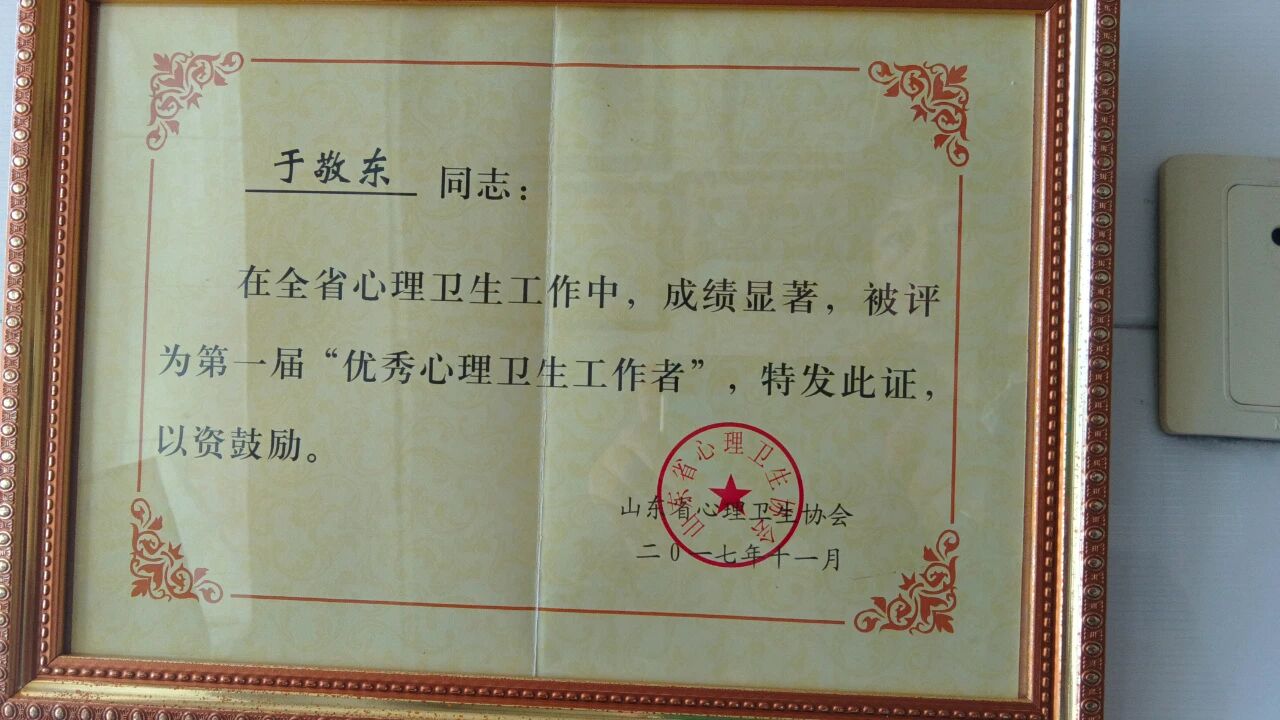 于敬东 同志：
在全省心理卫生工作中，成绩显著，被评
为第一届“优秀心理卫生工作者”，特发此证，
以资鼓励。
山东省心理卫生协会
山东省心理卫生协会
二0一七年十一月